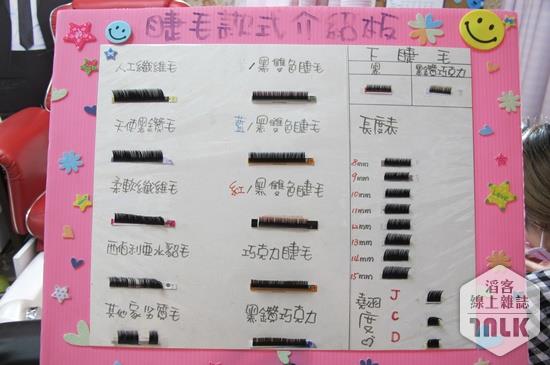 睫毛款式介紹板
人工纖維毛
/黑雙色睫毛
天使黑鑽毛
藍/黑雙色睫毛
柔軟纖維毛
紅/黑雙色睫毛
西伯利亞水貂毛
巧克力睫毛
其他家劣質毛
黑鑽巧克力
下睫毛
黑
黑鑽巧克力
長度表
8mm
9mm
10mm
11mm
12mm
13mm
14mm
15mm
翹度
J
C
D
滔客
線上雜誌
TNLK